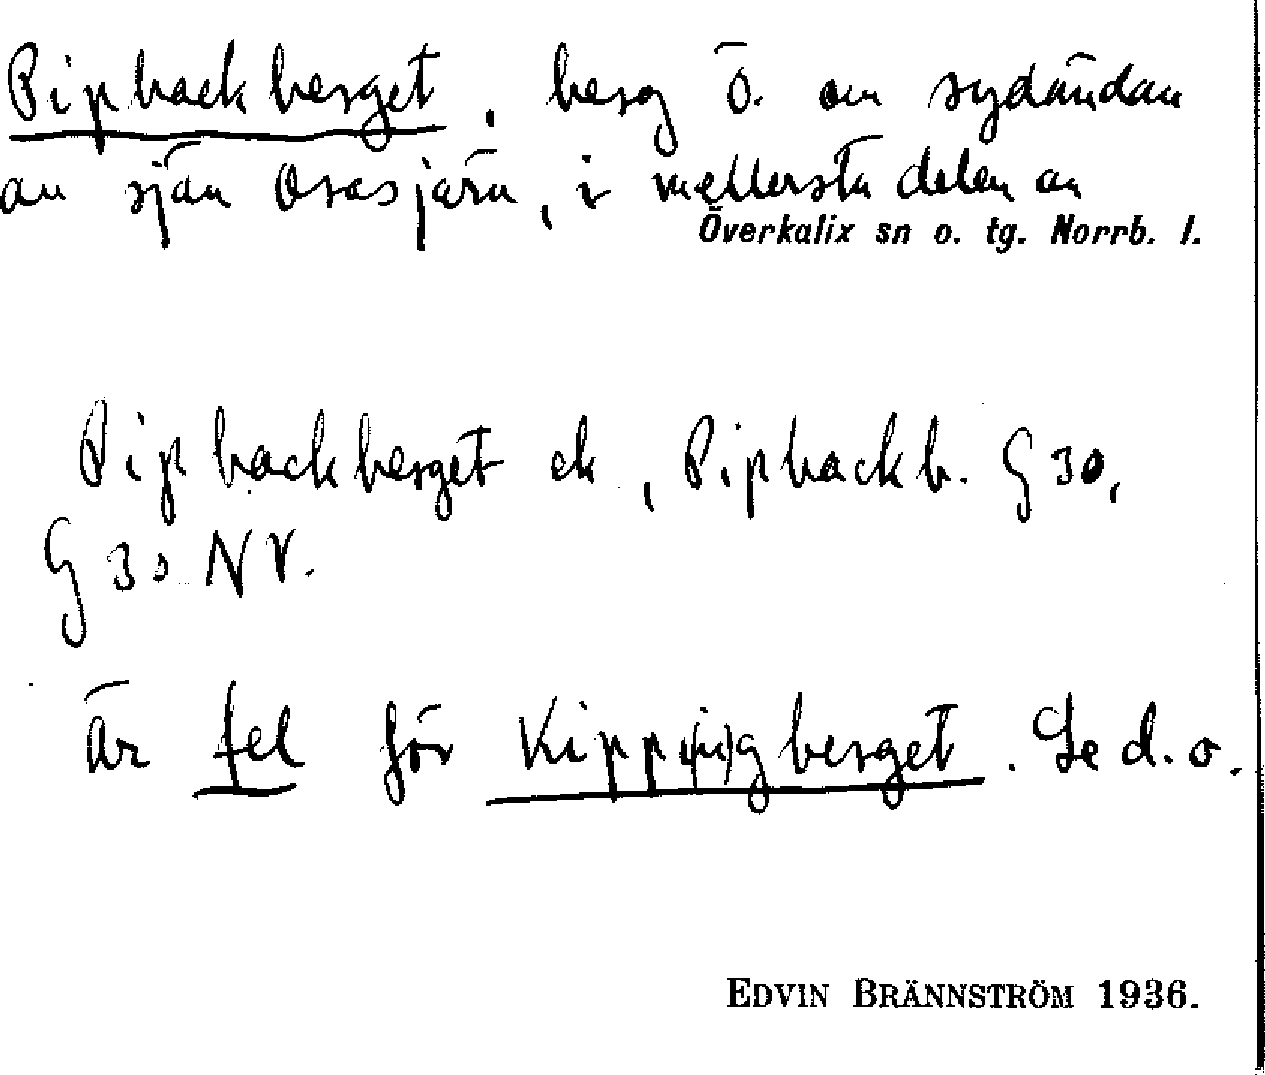 Pipbackberget, berg Ö. om sydändan
av sjön Orasjärv, i mellersta delen av
Överkalix sn o. tg. Norrb. l.
Pipbackberget ek, Pipbackb. G 30,
G 30 NV.
är fel för Kipp(in)gberget. Se d. o.
EDVIN BRÄNNSTRÖM 1936.